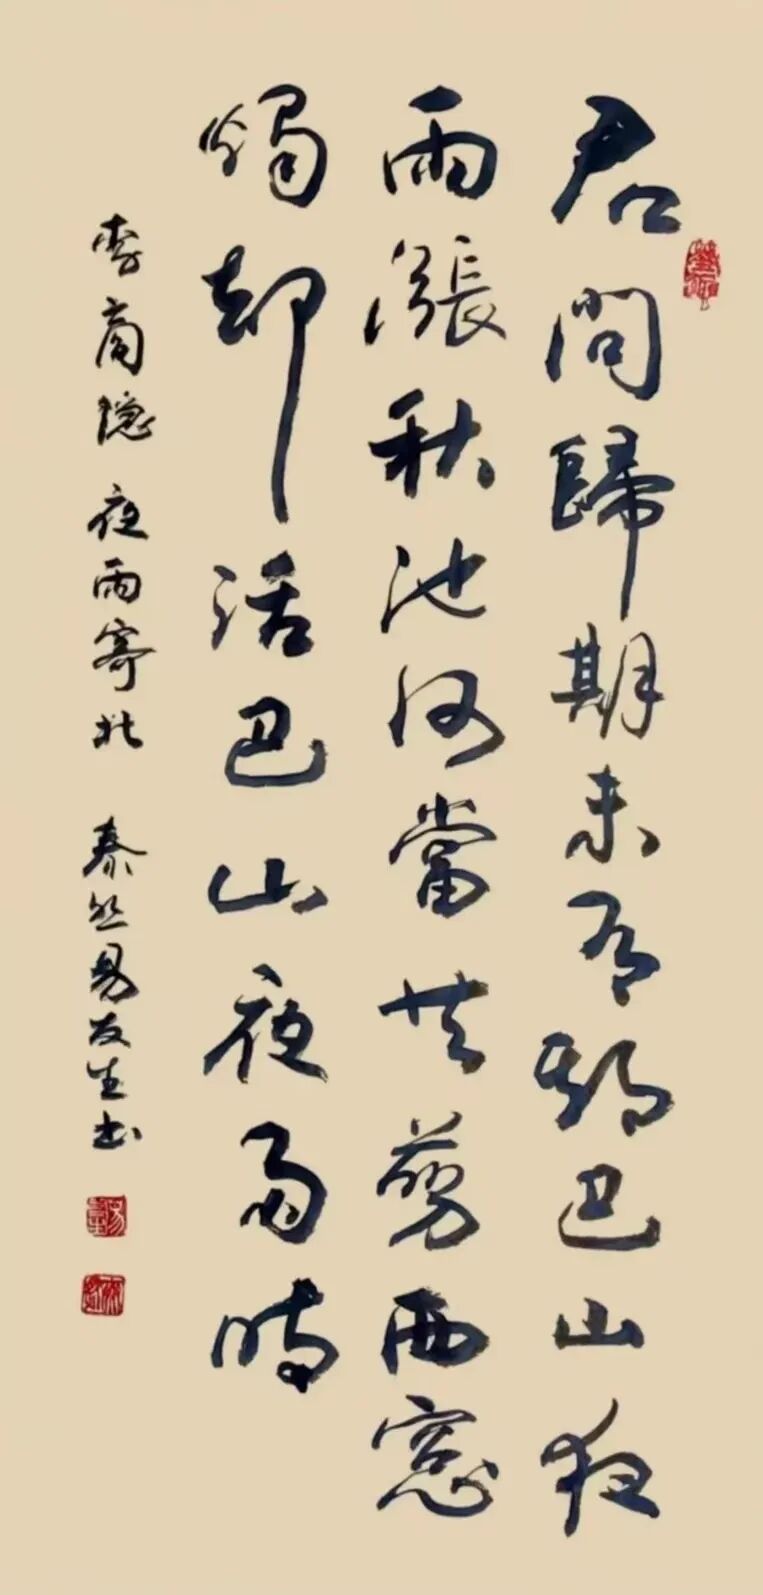 君問歸期未有期巴山夜
雨漲秋池何當共剪西窓
燭却話巴山夜雨時
李商隐 夜雨寄北 泰然易友生书